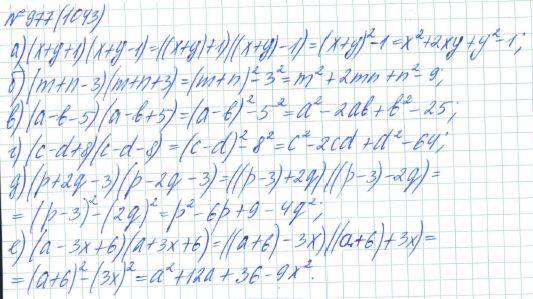 № 977 (1043)
а) (x+y+1)(x+y-1)=((x+y)+1)((x+y)-1)=(x+y)²-1=x²+2xy+y²-1;
б) (m+n-3)(m+n+3)=(m+n)²-3²=m²+2mn+n²-9;
в) (a-b-5)(a-b+5)=(a-b)²-5²=a²-2ab+b²-25;
г) (c-d+8)(c-d-8)=(c-d)²-8²=c²-2cd+d²-64;
д) (p+2q-3)(p-2q-3)=((p-3)+2q)((p-3)-2q)=
=(p-3)²-(2q)²=p²-6p+9-4q²;
е) (a-3x+6)(a+3x+6)=((a+6)-3x)((a+6)+3x)=
=(a+6)²-(3x)²=a²+12a+36-9x².